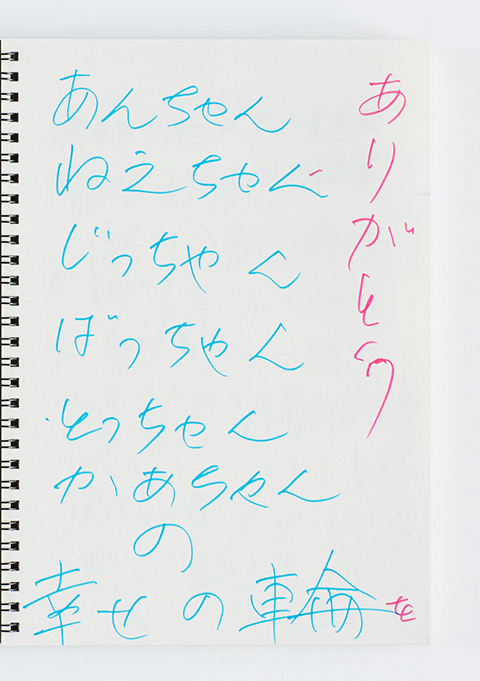 あんちゃん
ねえちゃん
じっちゃん
ばっちゃん
とっちゃん
かあちゃん
の
幸せの輪を
ありがとう